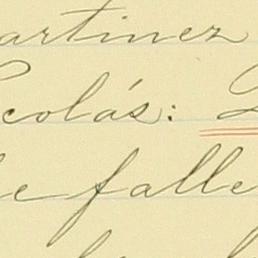 artinez
icolás:
de falle